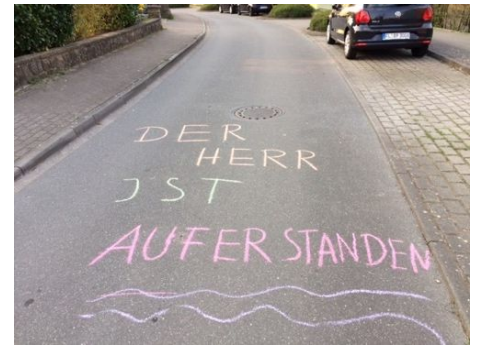 DER
HERR
JST
AUFERSTANDEN